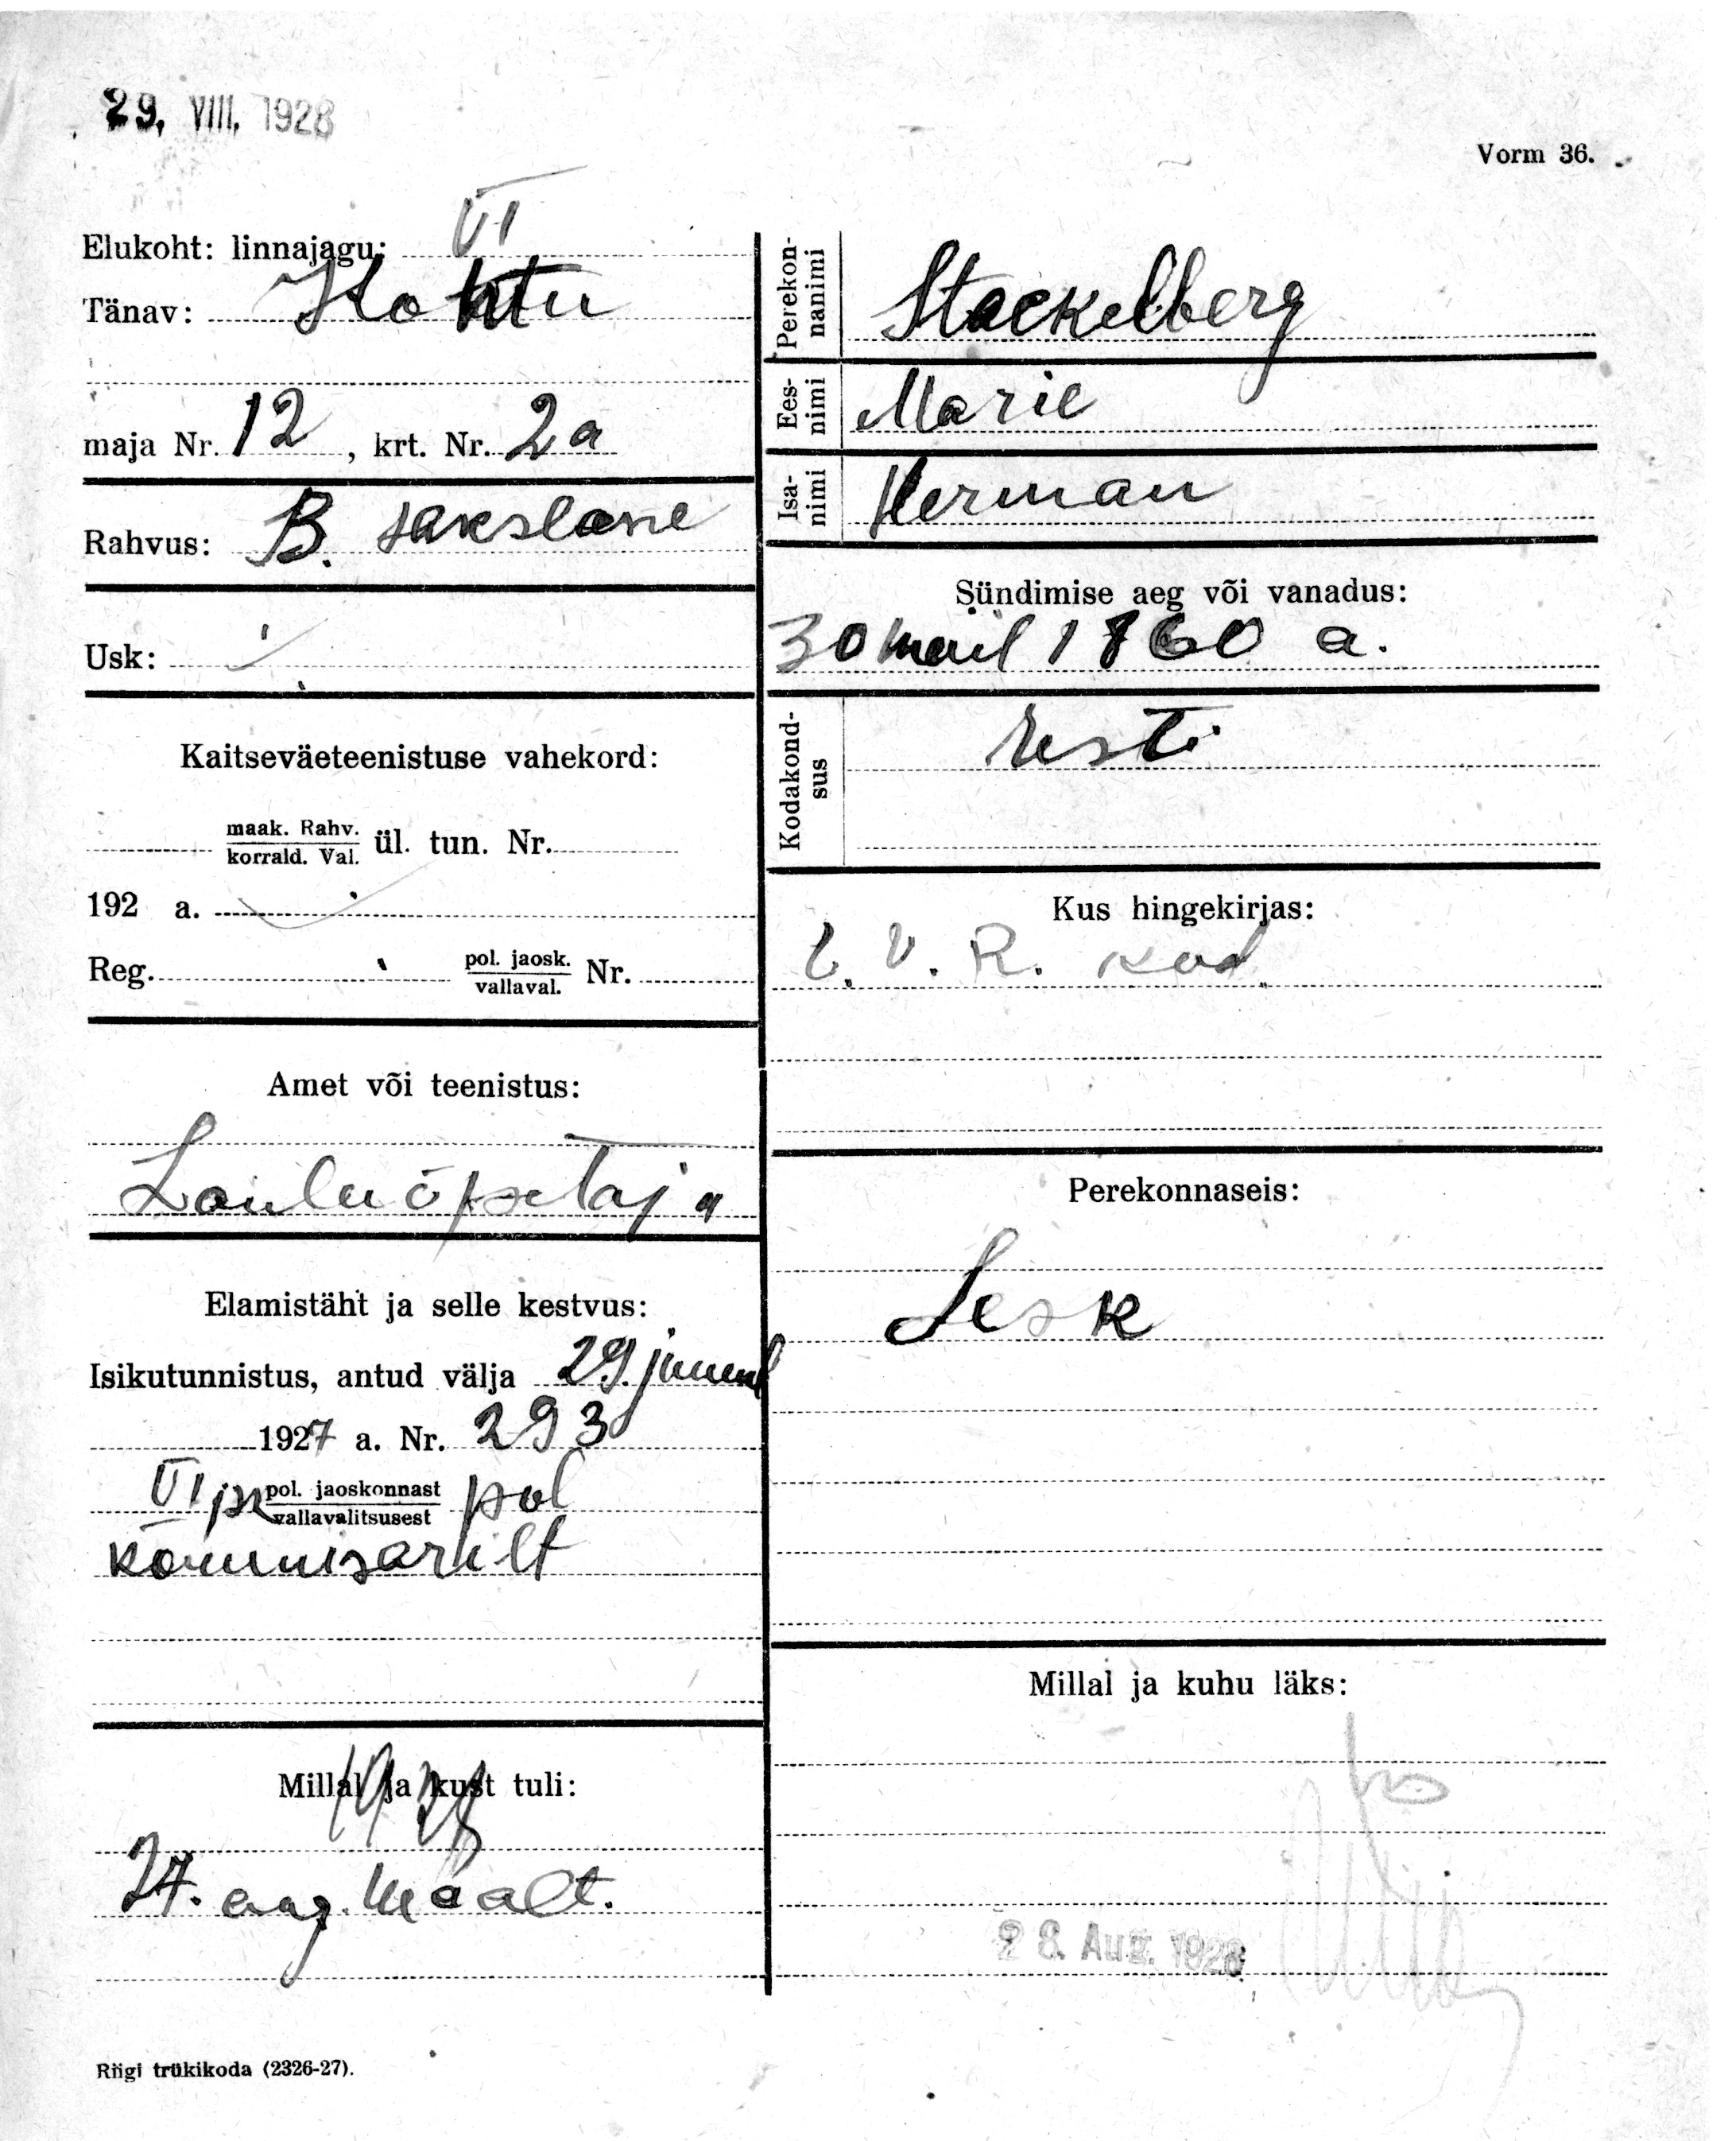 29. VIII. 1928
Vorm 36.
Elukoht: linnajagu: VI
Tänav: Kohtu
maja Nr. 12, krt. Nr. 2a
Rahvus: B. sakslane
Usk:
Kaitseväeteenistuse vahekord:
maak. Rahv.
korrald. Val. ül. tun. Nr.
192 a.
Reg. pol. jaosk. Nr.
vallaval.
Amet või teenistus:
Lauluõpetaja
Elamistäht ja selle kestvus:
Isikutunnistus, antud välja 29. juunil
1927 a. Nr. 293
VI jsk pol. jaoskonnast pol
vallavalitsusest
kommisarilt
Millal ja kust tuli:
1928
27. aug. Maalt.
Riigi trükikoda (2326-27).
Perekonnanimi
Stackelberg
Eesnimi
Marie
Isanimi
Herman
Sündimise aeg või vanadus:
30 mail 1860 a.
Kodakondsus
Eesti
Kus hingekirjas:
E. V. R. kod.
Perekonnaseis:
Lesk
Millal ja kuhu läks:
28. Aug. 1928